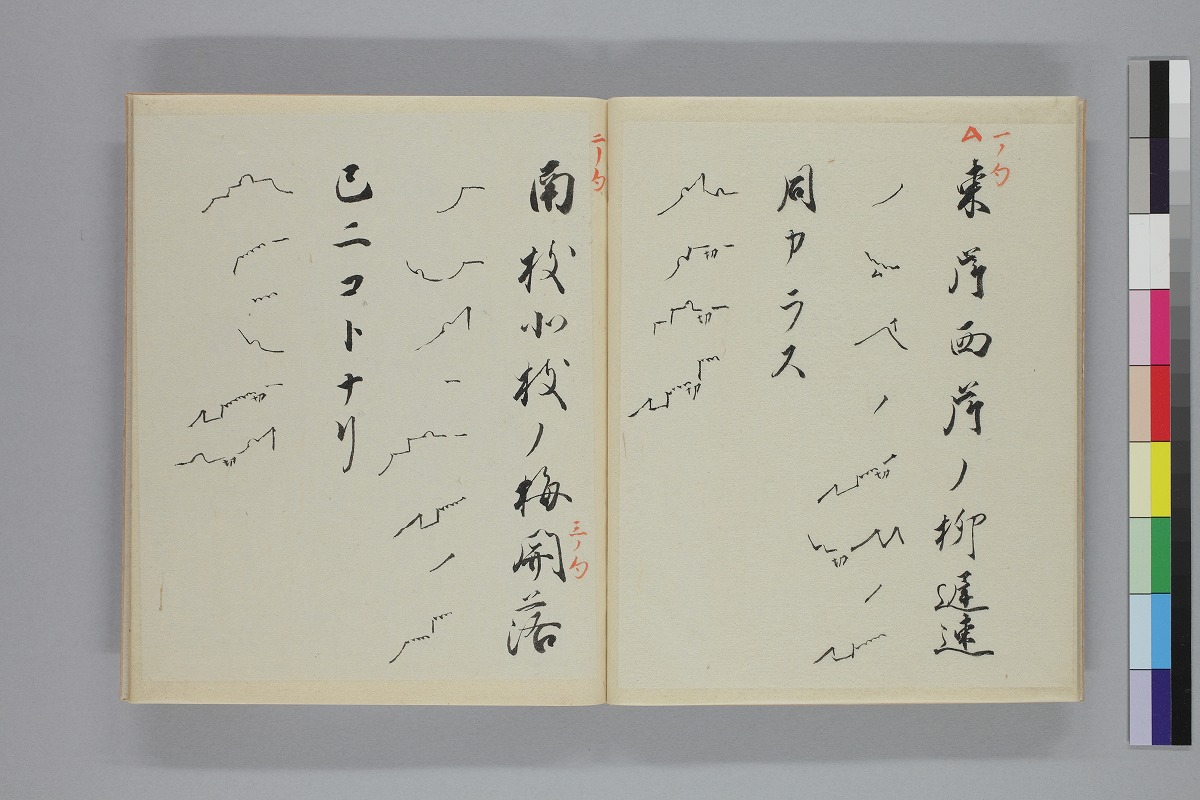 一ノ句
東岸西岸ノ柳遅速
同カラス
二ノ句
南枝北枝ノ梅開落
三ノ句
已ニコトナリ